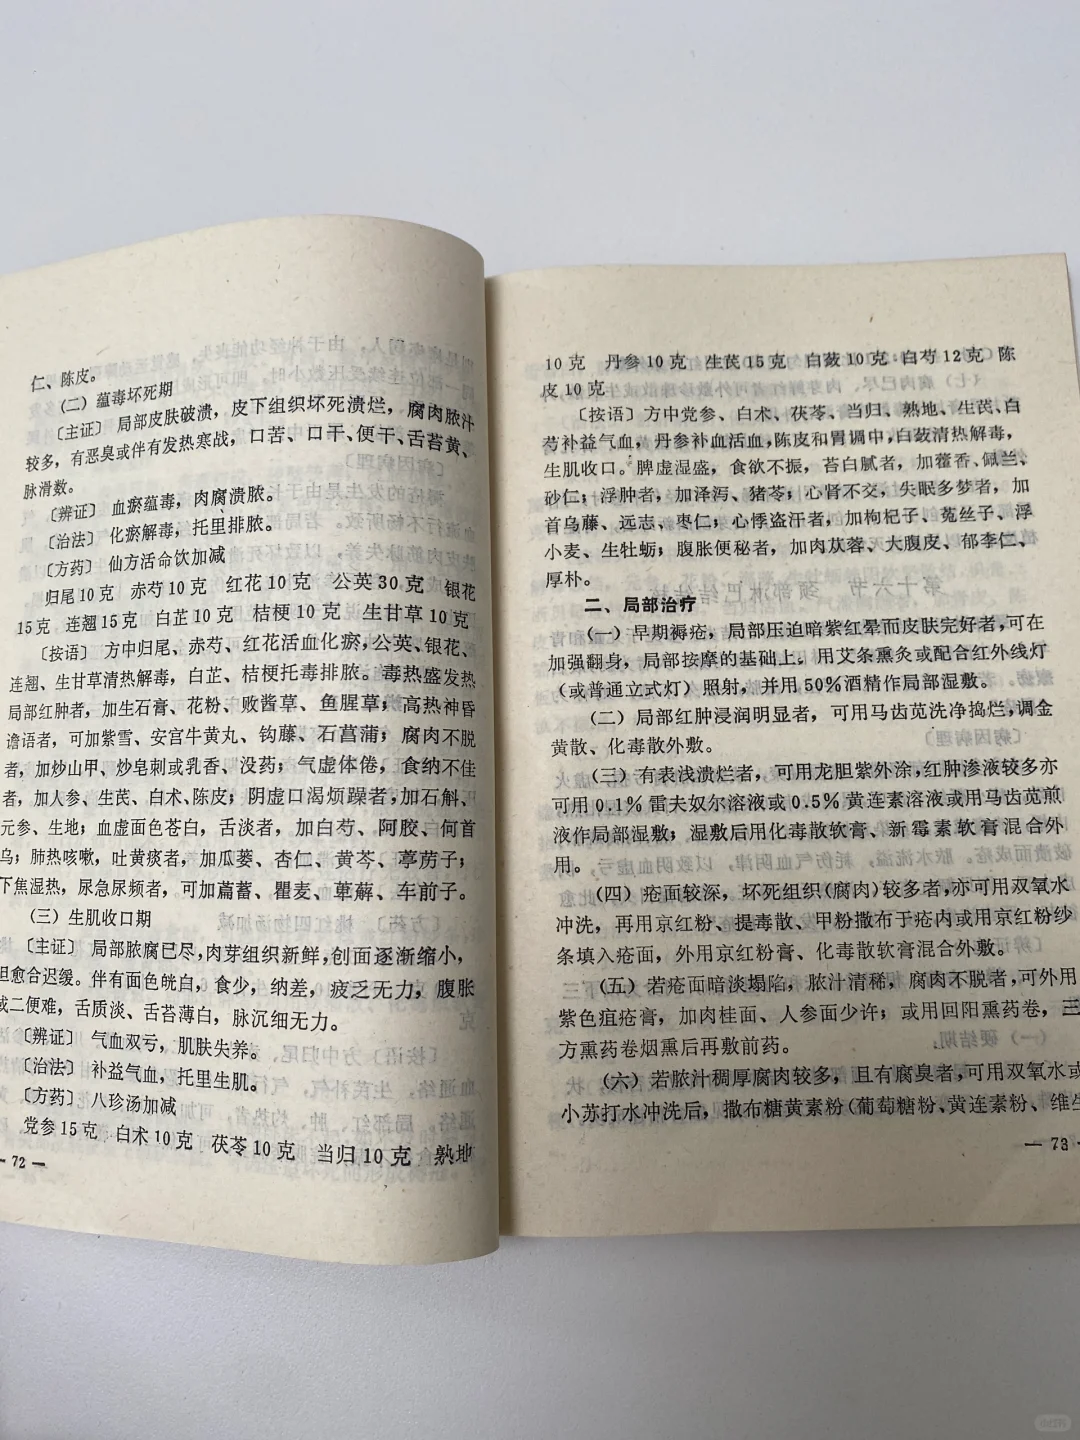 仁、陈皮。
(二) 蕴毒坏死期
〔主证〕 局部皮肤破溃，皮下组织坏死溃烂，腐肉脓汁
较多，有恶臭或伴有发热寒战，口苦、口干、便干、舌苔黄、
脉滑数。
〔辨证〕 血瘀蕴毒，肉腐溃脓。
〔治法〕 化瘀解毒，托里排脓。
〔方药〕 仙方活命饮加减
归尾10克 赤芍10克 红花10克 公英30克 银花
15克 连翘15克 白芷10克 桔梗10克 生甘草10克
〔按语〕 方中归尾、赤芍、红花活血化瘀，公英、银花、
连翘、生甘草清热解毒，白芷、桔梗托毒排脓。毒热盛发热
局部红肿者，加生石膏、花粉、败酱草、鱼腥草；高热神昏
谵语者，可加紫雪、安宫牛黄丸、钩藤、石菖蒲；腐肉不脱
者，加炒山甲、炒皂刺或乳香、没药；气虚体倦，食纳不佳
者，加人参、生芪、白术、陈皮；阴虚口渴烦躁者，加石斛、
元参、生地；血虚面色苍白，舌淡者，加白芍、阿胶、何首
乌；肺热咳嗽，吐黄痰者，加瓜蒌、杏仁、黄芩、葶苈子；
下焦湿热，尿急尿频者，可加萹蓄、瞿麦、萆薢、车前子。
(三) 生肌收口期
〔主证〕 局部脓腐已尽，肉芽组织新鲜，创面逐渐缩小，
但愈合迟缓。伴有面色㿠白，食少，纳差，疲乏无力，腹胀
或二便难，舌质淡、舌苔薄白，脉沉细无力。
〔辨证〕 气血双亏，肌肤失养。
〔治法〕 补益气血，托里生肌。
〔方药〕 八珍汤加减
党参15克 白术10克 茯苓10克 当归10克 熟地
— 72 —
10克 丹参10克 生芪15克 白蔹10克 白芍12克 陈
皮10克
〔按语〕方中党参、白术、茯苓、当归、熟地、生芪、白
芍补益气血，丹参补血活血，陈皮和胃调中，白蔹清热解毒，
生肌收口。脾虚湿盛，食欲不振，苔白腻者，加藿香、佩兰、
砂仁；浮肿者，加泽泻、猪苓；心肾不交，失眠多梦者，加
首乌藤、远志、枣仁；心悸盗汗者，加枸杞子、菟丝子、浮
小麦、生牡蛎；腹胀便秘者，加肉苁蓉、大腹皮、郁李仁、
厚朴。
二、局部治疗
(一) 早期褥疮，局部压迫暗紫红晕而皮肤完好者，可在
加强翻身，局部按摩的基础上，用艾条熏灸或配合红外线灯
(或普通立式灯) 照射，并用50%酒精作局部湿敷。
(二) 局部红肿浸润明显者，可用马齿苋洗净捣烂，调金
黄散、化毒散外敷。
(三) 有表浅溃烂者，可用龙胆紫外涂，红肿渗液较多亦
可用0.1%雷夫奴尔溶液或0.5%黄连素溶液或用马齿苋煎
液作局部湿敷；湿敷后用化毒散软膏、新霉素软膏混合外
用。
(四) 疮面较深，坏死组织(腐肉)较多者，亦可用双氧水
冲洗，再用京红粉、提毒散、甲粉撒布于疮内或用京红粉纱
条填入疮面，外用京红粉膏、化毒散软膏混合外敷。
(五) 若疮面暗淡塌陷，脓汁清稀，腐肉不脱者，可外用
紫色疽疮膏，加肉桂面、人参面少许；或用回阳熏药卷，三
方熏药卷烟熏后再敷前药。
(六) 若脓汁稠厚腐肉较多，且有腐臭者，可用双氧水或
小苏打水冲洗后，撒布糖黄素粉(葡萄糖粉、黄连素粉、维生
— 73